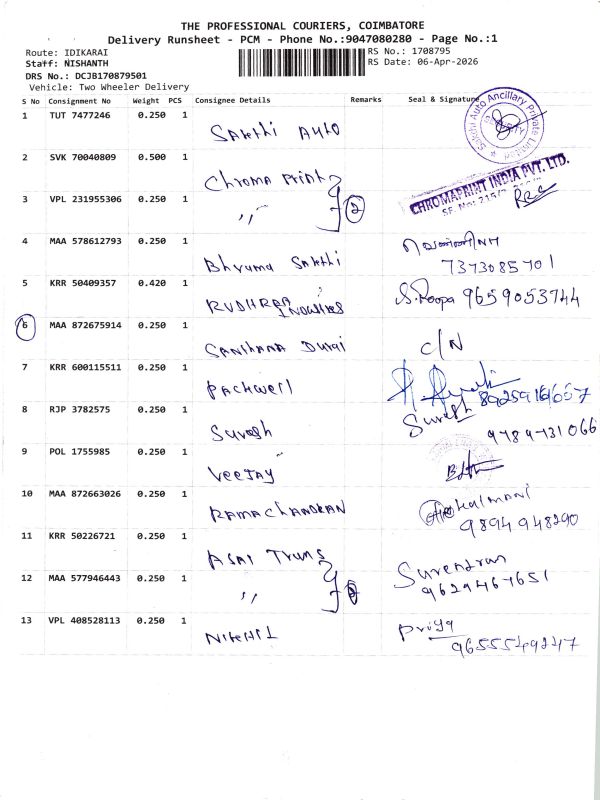 THE PROFESSIONAL COURIERS, COIMBATORE
Delivery Runsheet - PCM - Phone No.:9047080280 - Page No.:1
Route: IDIKARAI RS No.: 1708795
Staff: NISHANTH RS Date: 06-Apr-2026
DRS No.: DCJB170879501
Vehicle: Two Wheeler Delivery
S No Consignment No Weight PCS Consignee Details Remarks Seal & Signature
1 TUT 7477246 0.250 1 Sakthi Auto
Sakthi Auto Ancillary Private Limited
2 SVK 70040809 0.500 1 Chroma Print
CHROMAPRINT INDIA PVT. LTD.
3 VPL 231955306 0.250 1 ,, 2
4 MAA 578612793 0.250 1 Bhrama Sakthi
7373085701
5 KRR 50409357 0.420 1 RUDHRAA INDUSTRIES S. Roopa 9659053744
6 MAA 872675914 0.250 1 Santhana Durai C/N
7 KRR 600115511 0.250 1 Packwell
8 RJP 3782575 0.250 1 Suresh Suresh
9789731066
9 POL 1755985 0.250 1 Veejay
10 MAA 872663026 0.250 1 RAMACHANDRAN
9894948290
11 KRR 50226721 0.250 1 ASAI Trums Surendran
12 MAA 577946443 0.250 1 ,, 2 9629467651
13 VPL 408528113 0.250 1 Nikhil Priya
9655549247